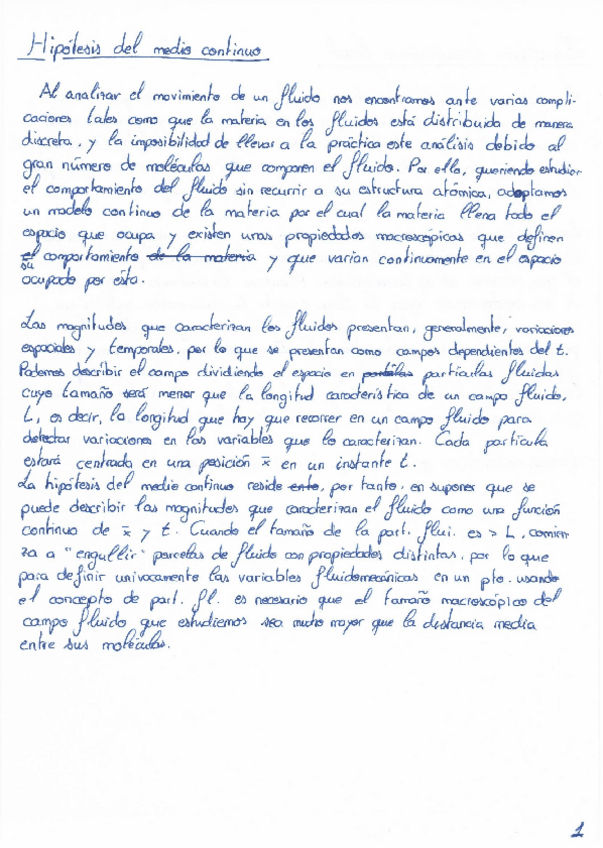 Hipótesis del medio continuo
Al analizar el movimiento de un fluido nos encontramos ante varias compli-
caciones tales como que la materia en los fluidos está distribuida de manera
discreta, y la imposibilidad de llevar a la práctica este análisis debido al
gran número de moléculas que componen el fluido. Por ello, queriendo estudiar
el comportamiento del fluido sin recurrir a su estructura atómica, adoptamos
un modelo continuo de la materia por el cual la materia llena todo el
espacio que ocupa y existen unas propiedades macroscópicas que definen
el comportamiento de la materia y que varían continuamente en el espacio
su
ocupado por esta.
Las magnitudes que caracterizan los fluidos presentan, generalmente, variaciones
espaciales y temporales, por lo que se presentan como campos dependientes del t.
Podemos describir el campo dividiendo el espacio en partículas fluidas
cuyo tamaño será menor que la longitud característica de un campo fluido,
L, es decir, la longitud que hay que recorrer en un campo fluido para
detectar variaciones en las variables que lo caracterizan. Cada partícula
estará centrada en una posición x̄ en un instante t.
La hipótesis del medio continuo reside ento, por tanto, en suponer que se
puede describir las magnitudes que caracterizan el fluido como una función
continua de x̄ y t. Cuando el tamaño de la part. flui. es > L, comien
za a "engullir" parcelas de fluido con propiedades distintas, por lo que
para definir univocamente las variables fluidomecánicas en un pto. usando
el concepto de part. fl. es necesario que el tamaño macroscópico del
campo fluido que estudiemos sea mucho mayor que la distancia media
entre sus moléculas.
1